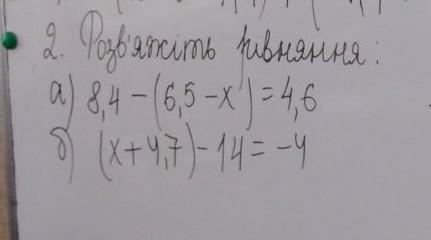 2. Розв'яжіть рівняння:
а) 8,4 - (6,5 - x) = 4,6
б) (x + 4,7) - 14 = -4